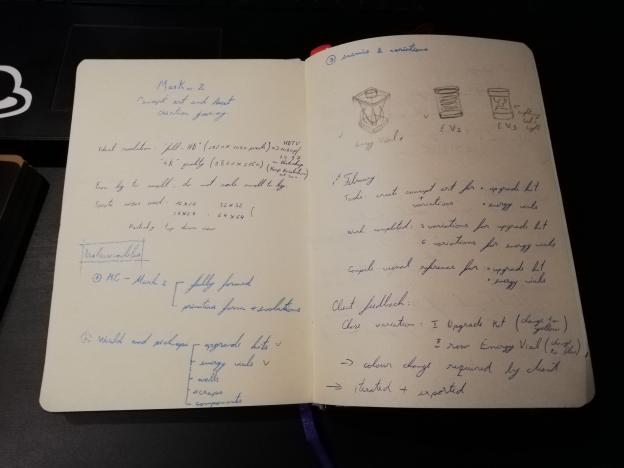 Mark - 2
Concept art and Asset
creation journey
Ideal resolution: "full-HD" (1920 x 1080 pixels)
HDTV
"4K" quality (3840 x 2160) (Keep resolution
From big to small, do not scale small to big
Sprite sizes used: 16x16 32x32
64x64
Partially top down view
① MC - Mark 2 fully formed
primitive form + evolutions
② World and pickups upgrade kits ✓
energy vials ✓
walls
scraps
components
③ enemies & variations
Energy Vial
E.V 2
E.V 3
light
February
Tasks: create concept art for • upgrade kit
variations • energy vials
Work completed: 3 variations for upgrade kit
6 variations for energy vials
Compile visual reference for • upgrade kit
• energy vials
Client feedback:
Chose variation: 1 Upgrade Kit (change to
yellow)
Energy Vial (change
to blue)
→ colour change required by client
→ iterated + exported